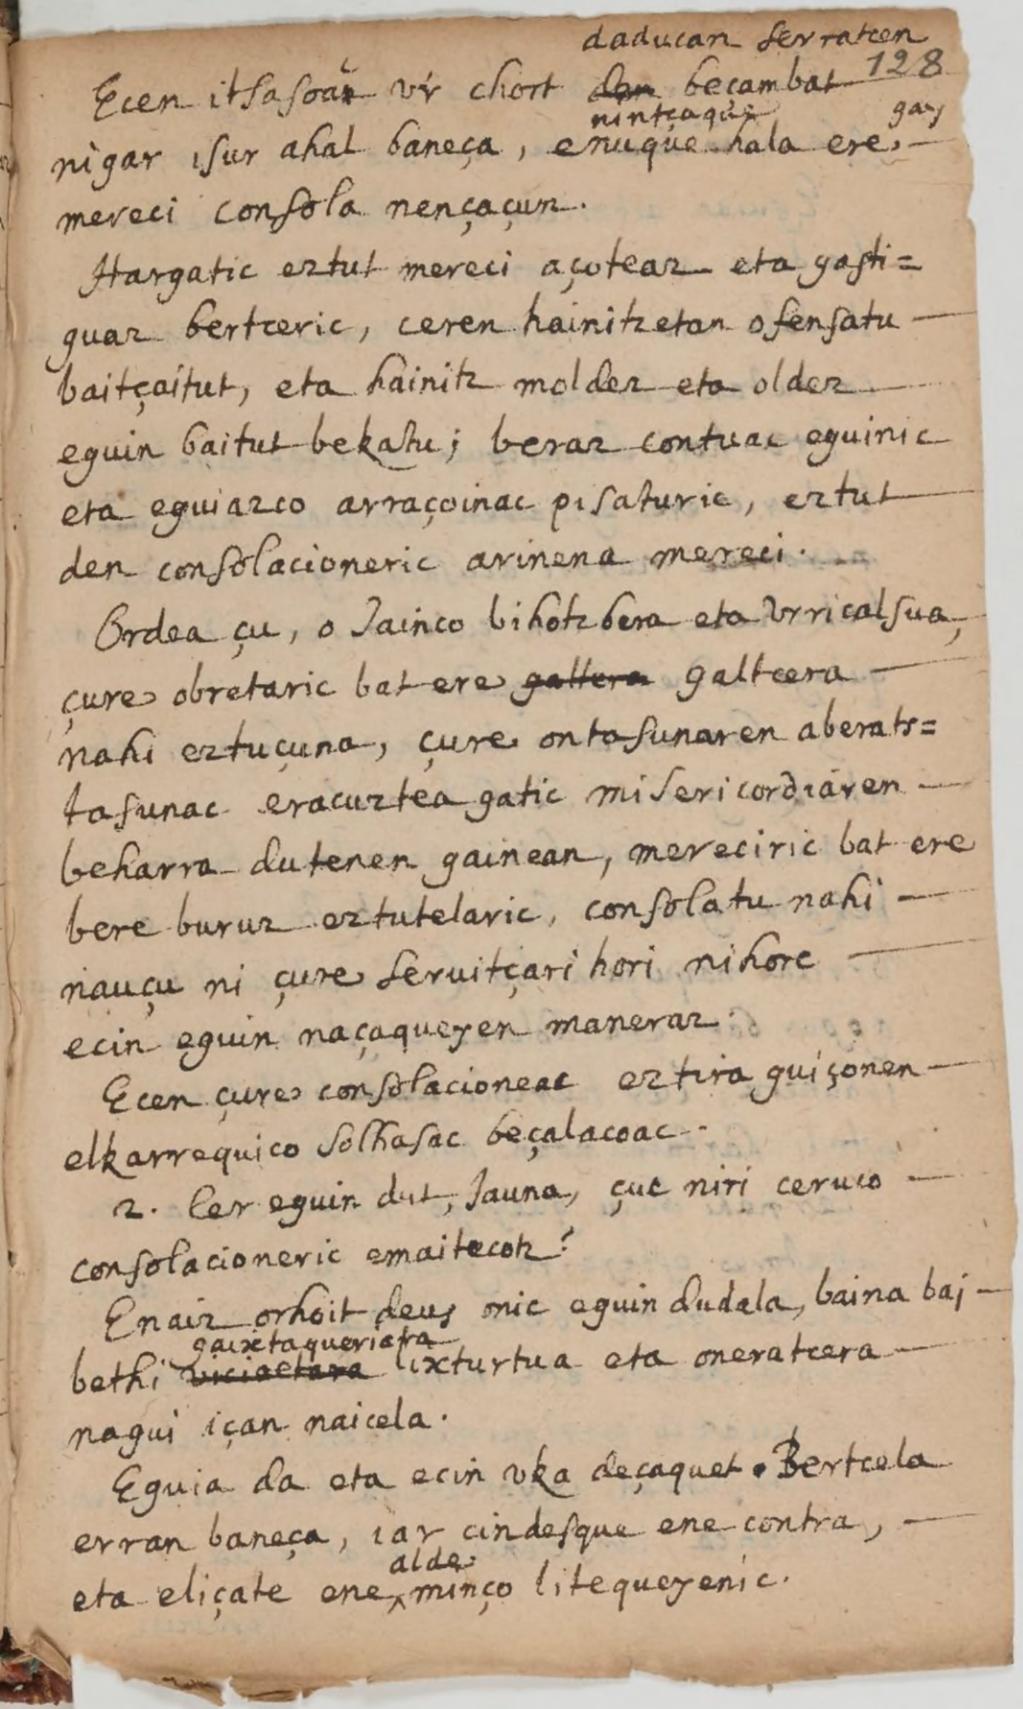 daducan serratcen
128
Ecen itsasoac vr chort den beçambat
nintçaque gay
nigar isur ahal baneça, enuque hala ere
mereci consola nençaçun.
Hargatic eztut mereci açoteaz eta gasti=
guaz bertceric, ceren hainitzetan ofensatu
baitçaitut, eta hainitz moldez eta oldez
eguin baitut bekatu; beraz contuac eguinic
eta eguiazco arraçoinac pisaturic, eztut
den consolacioneric arinena mereci.
Ordea çu, o Jainco bihotz bera eta Vrricalsua,
çure obretaric bat ere galtera galtcera
nahi eztuçuna, çure ontasunaren aberats=
tasunac eracuztea gatic misericordiaren
beharra dutenen gainean, mereciric bat ere
bere buruz eztutelaric, consolatu nahi
nauçu ni çure seruitçari hori nihorc
ecin eguin naçaqueyen maneraz.
Ecen çure consolacioneac eztira guiçonen
elkarrequico solhasac beçalacoac.
2. Cer eguin dut, Jauna, çuc niri ceruco
consolacioneric emaitecotz?
Enaiz orhoit deus onic eguin dudala, baina bai
gaixtaqueriatra
bethi viciaetara lixturtua eta oneratcera
nagui içan naicela.
Eguia da eta ecin vka deçaquet. Bertcela
erran baneça, iar cindesque ene contra,
alde
eta eliçate ene minço litequeyenic.